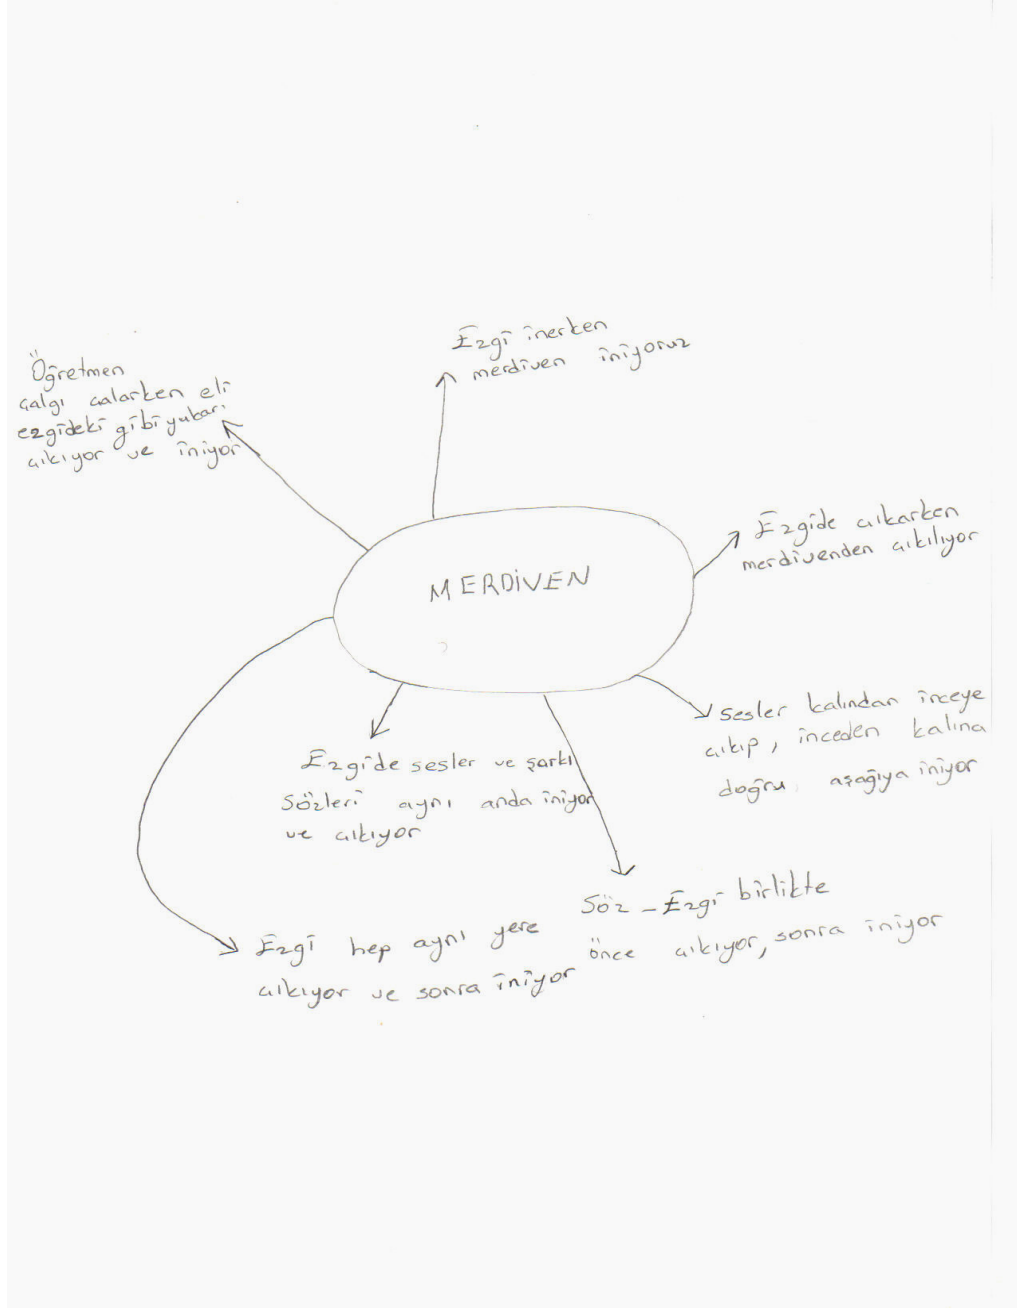 Ezgi inerken
merdiven iniyoruz
Öğretmen
çalgı çalarken eli
ezgideki gibi yukarı
çıkıyor ve iniyor
Ezgide çıkarken
merdivenden çıkılıyor
MERDİVEN
Sesler kalından inceye
çıkıp, inceden kalına
doğru aşağıya iniyor
Ezgide sesler ve şarkı
sözleri aynı anda iniyor
ve çıkıyor
Söz - Ezgi birlikte
önce çıkıyor, sonra iniyor
Ezgi hep aynı yere
çıkıyor ve sonra iniyor